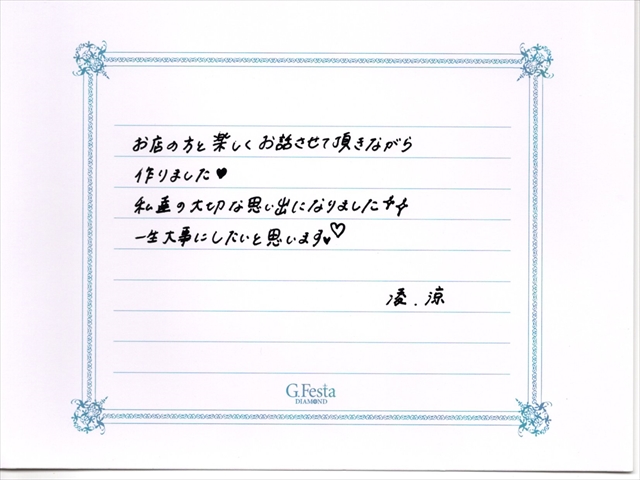 お店の方と楽しくお話させて頂きながら
作りました♥
私達の大切な思い出になりました
一生大事にしたいと思います♥♡
凌.涼
G.Festa
DIAMOND